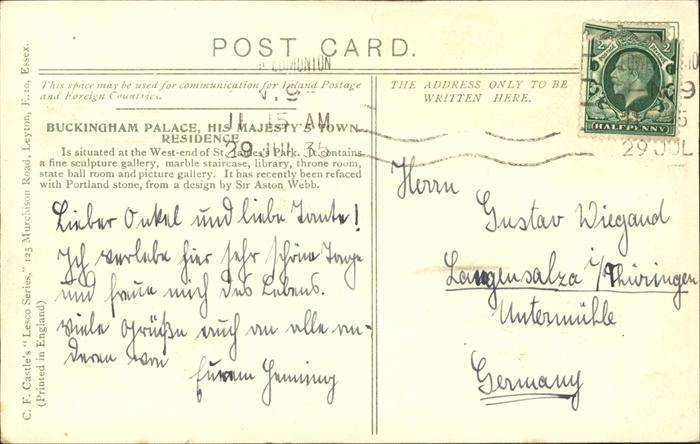 POST CARD.
This space may be used for communication for Inland Postage
and Foreign Countries.
THE ADDRESS ONLY TO BE
WRITTEN HERE.
BUCKINGHAM PALACE, HIS MAJESTY'S TOWN
RESIDENCE
Is situated at the West-end of St. James's Park. It contains
a fine sculpture gallery, marble staircase, library, throne room,
state ball room and picture gallery. It has recently been refaced
with Portland stone, from a design by Sir Aston Webb.
Lieber Onkel und liebe Tante!
Ich verlebe hier sehr schöne Tage
und freue mich des Lebens.
Viele Grüße auch an alle an-
deren von
Eurem Henning
Herrn
Gustav Wiegand
Langensalza i/Thüringen
Untermühle
Germany
C. F. Castle's "Lesco Series," 125 Murchison Road, Leyton, E.10, Essex.
(Printed in England)
EDMONTON
11 15 AM
29 JUL 35
HALFPENNY
29 JUL